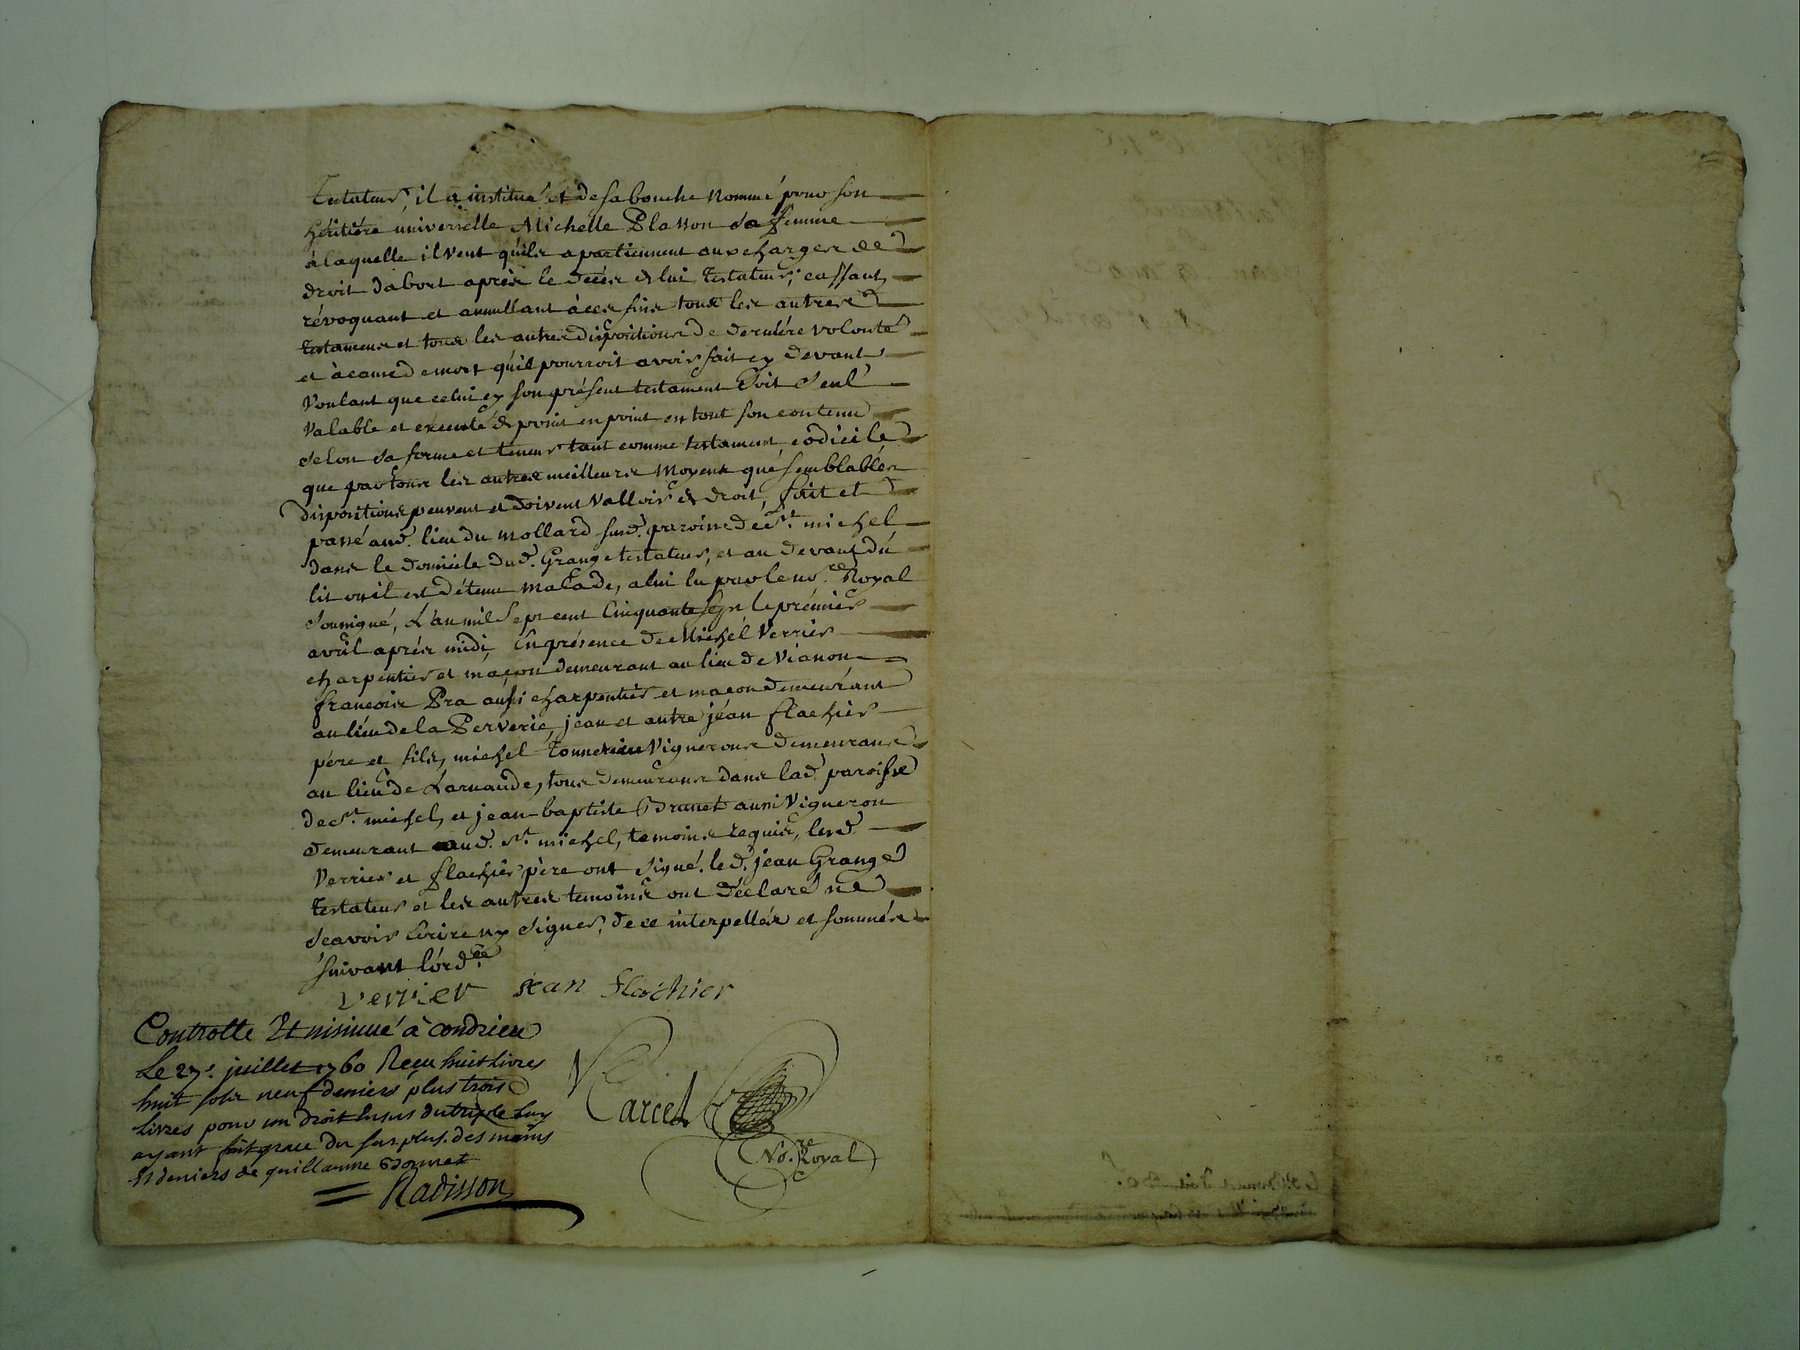 testateur, il a institué et de sa bouche nommé pour son
héritiére universelle Michelle Plasson sa femme
à laquelle il veut qu'ils apartiennent aux charges de
droit dabort après le décés de lui testateur, cassant
révoquant et annullant à ces fins tous les autres
testamens et tous les autres dispositions de derniére volonté
et à cause de mort qu'il pourroit avoir fait cy devant
Voulant que celui cy son présent testament soit seul
Valable et éxecuté de point en point en tout son contenu
selon sa forme et teneur tant comme testament codicile
que par tous les autres meilleurs moyens que semblables
dispositions peuvent et doivent valloir de droit, fait et
passé aud. lieu du mollard susd. paroisse de St. michel
dans le domicile dud. Grange testateur, et au devant du
lit où il est détenu malade, a lui lu par le no.re Royal
soussigné, L'an mil sept cent Cinquante sept le prémier
avril aprés midi, En présence de Michél Verrier
charpentier et maçon demeurant au lieu de Vianon
francois Pra aussi charpentier et maçon demeurant
au lieu de la Perverie, jean et autre jéan flachier
pére et fils, michel Vignerons demeurans
au lieu de Larnaude, tous demeurans dans lad. paroisse
de St. michel, et jean-baptiste Bonnet aussi Vigneron
demeurant aud. St. michel, temoins requis, lesd.
Verrier et flachier pére ont signé. led. jean Grange
testateur et les autres temoins ont déclaré ne
sçavoir écrire ny signer, de ce interpellés et sommés
suivant l'ord.ce
verrier jean flachier
Controlle Et insinué à condrieu
Le 27e. juillet 1760 Reçu huit livres
huit sols neuf deniers plus trois
livres pour un droit En sus du triple luy
ayant fait grace du surplus. des mains
Et deniers de guillaume Bonnet
Radisson
Carcel
No.re Royal